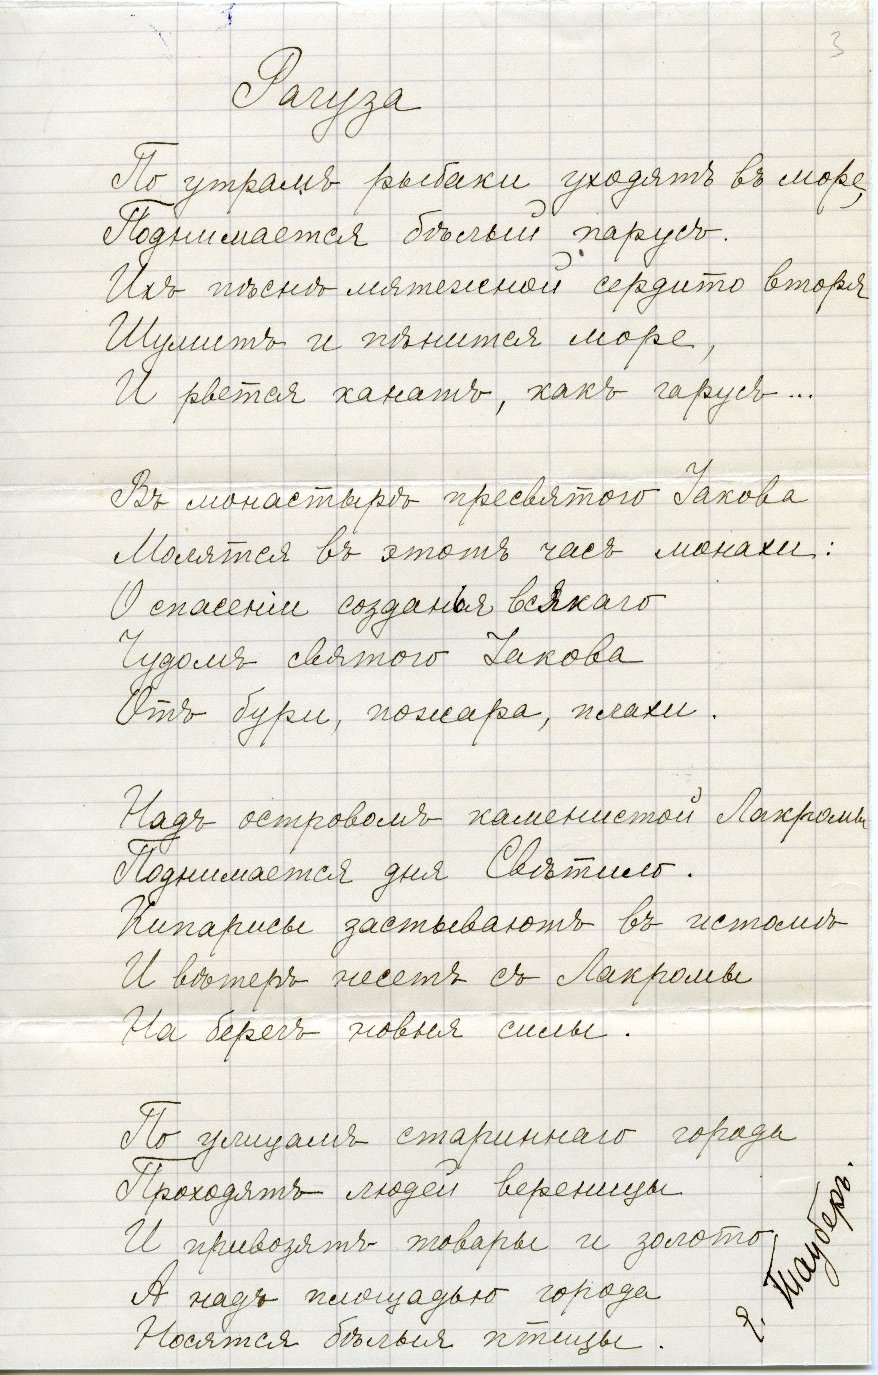 3
Рагуза
По утрамъ рыбаки уходятъ въ море,
Поднимается бѣлый парусъ.
Ихъ пѣснѣ мятежной сердито вторя
Шумитъ и пѣнится море,
И рвется канатъ, какъ гарусъ...
Въ монастырѣ пресвятого Іакова
Молятся въ этотъ часъ монахи:
О спасеніи созданья всякаго
Чудомъ святого Іакова
Отъ бури, пожара, плахи.
Надъ островомъ каменистой Лакромы
Поднимается дня Свѣтило.
Кипарисы застываютъ въ истомѣ
И вѣтеръ несетъ съ Лакромы
На берегъ новыя силы.
По улицамъ стариннаго города
Проходятъ людей вереницы
И привозятъ товары и золото,
А надъ площадью города
Носятся бѣлыя птицы.
Я. Тауберъ.